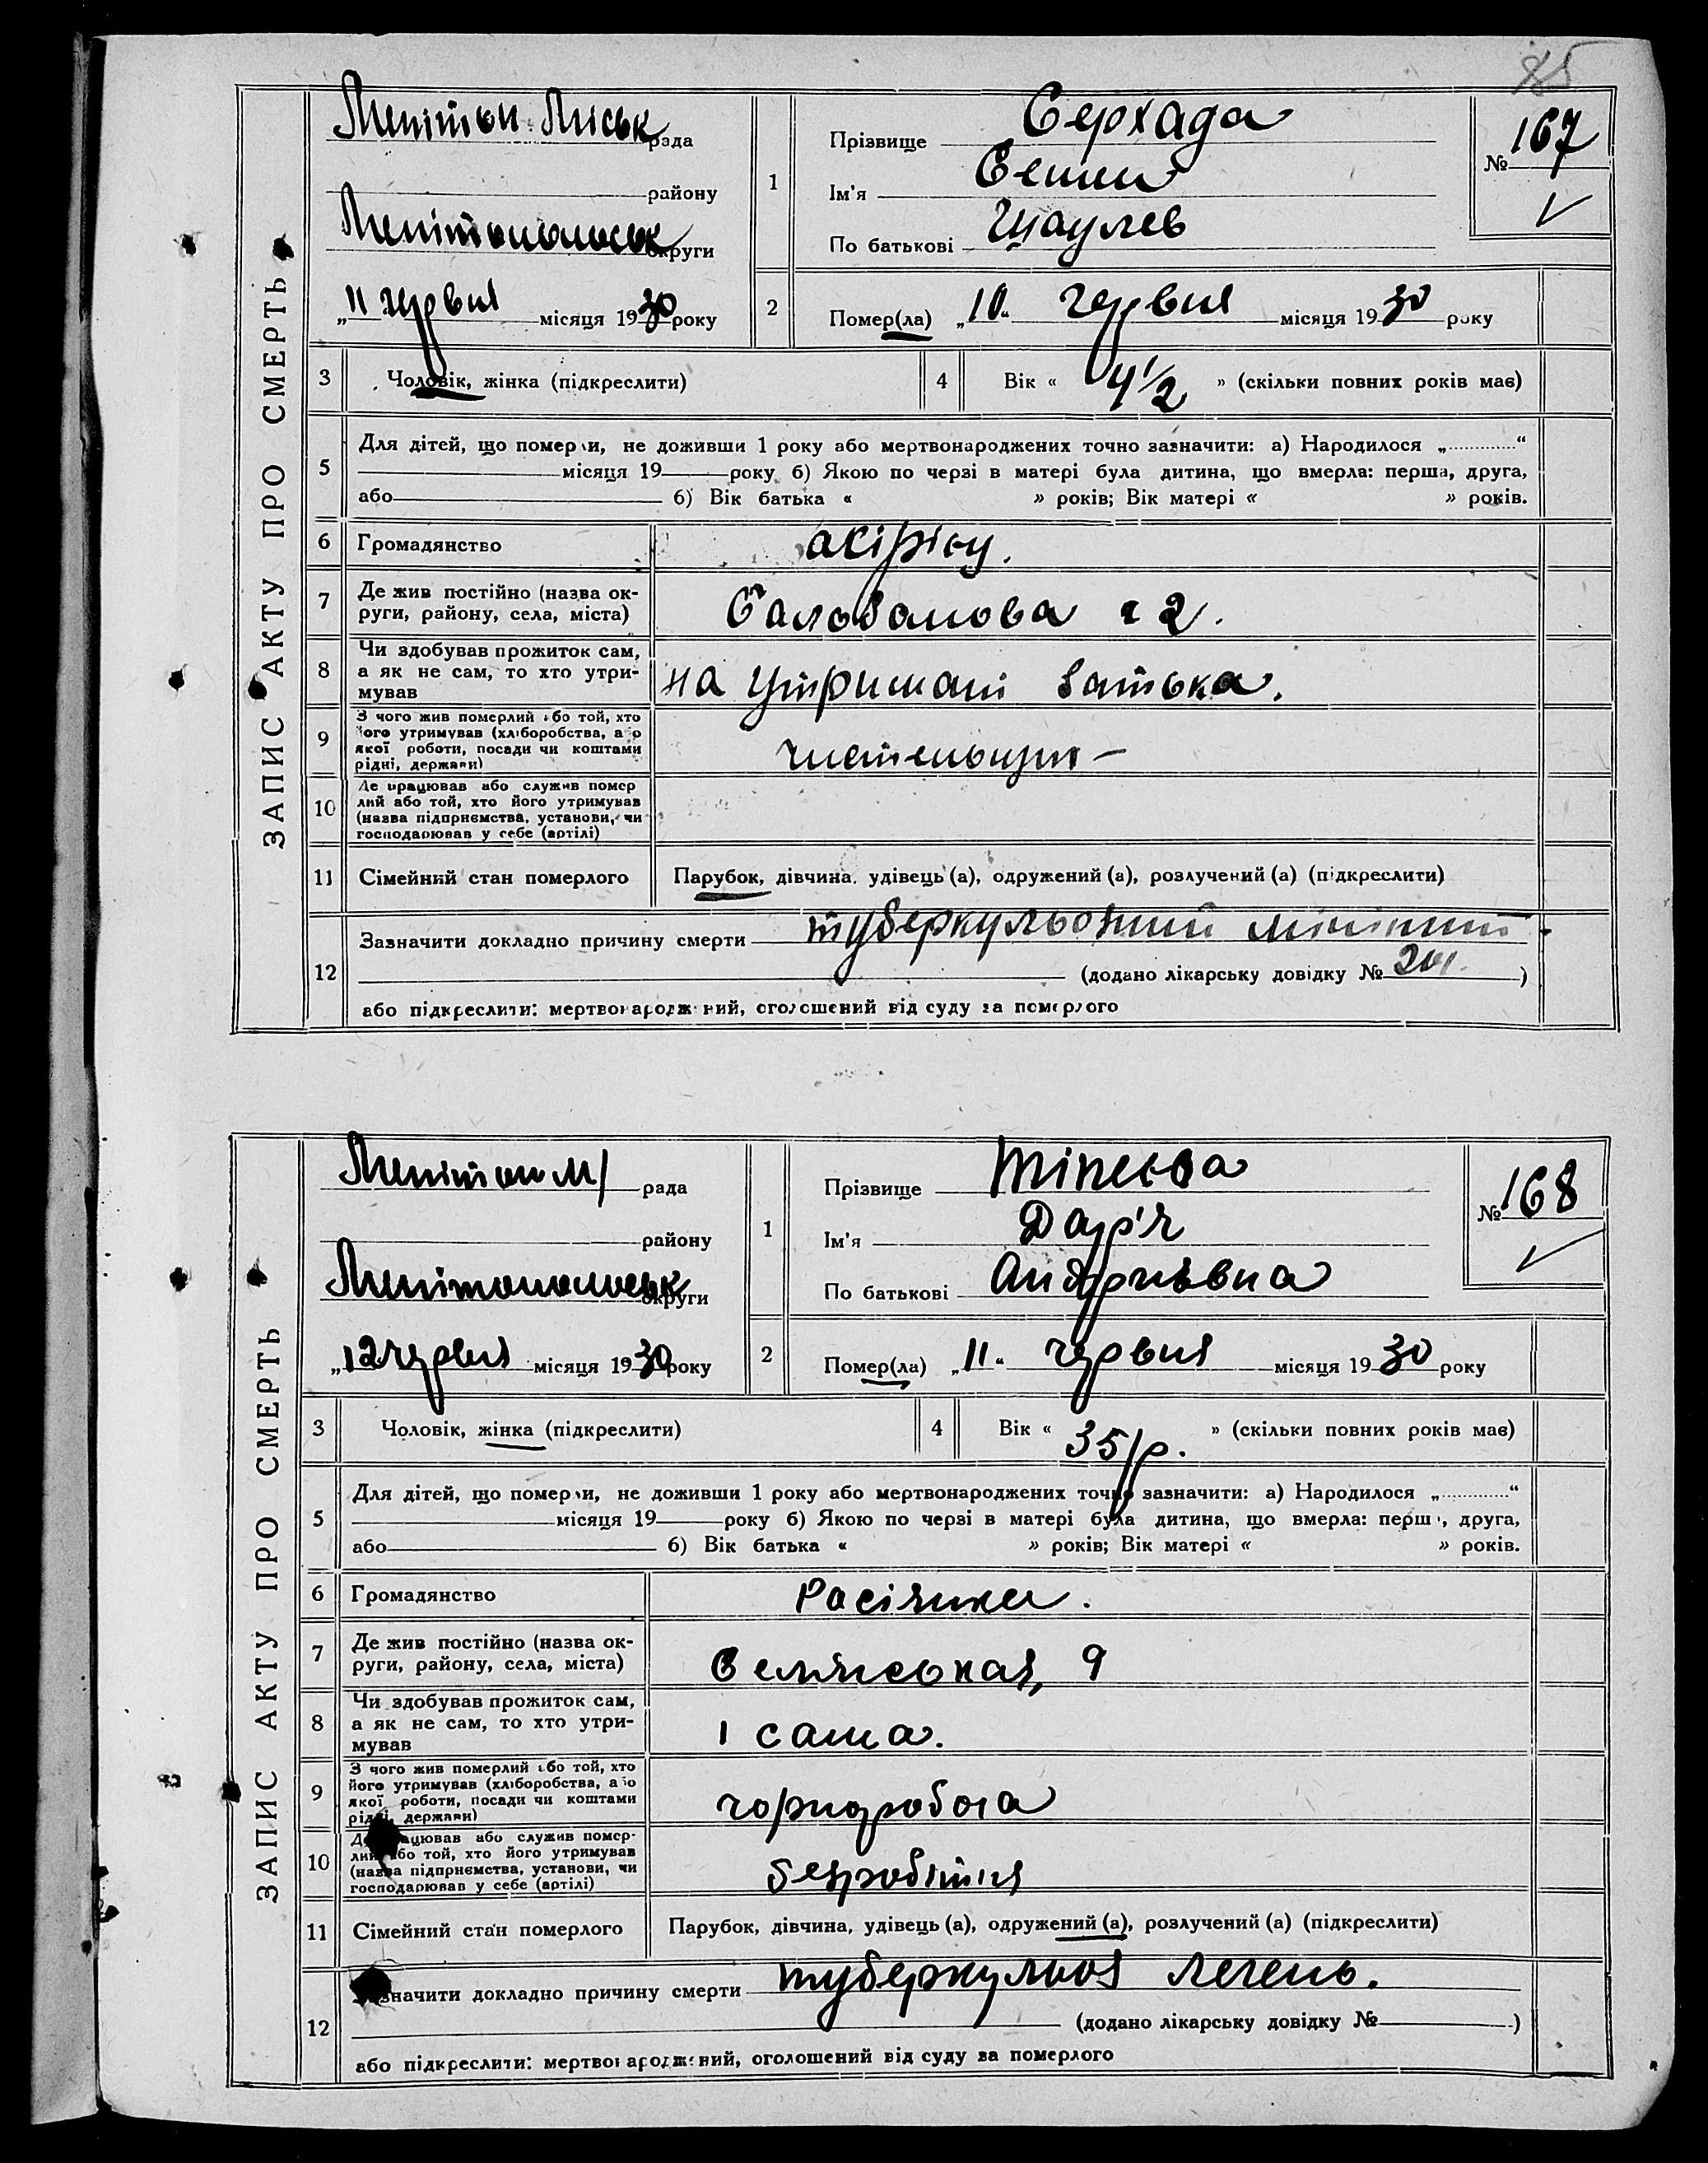 85
ЗАПИС АКТУ ПРО СМЕРТЬ
Мелітоп. Міськ рада
району
Мелітопольськ округи
„11 червня місяця 1930 року
1
Прізвище Серхада
Ім'я
По батькові
№ 167
2
Помер(ла) „10“ червня місяця 1930 року
3 Чоловік, жінка (підкреслити)
4 Вік « 4 1/2 » (скільки повних років має)
5 Для дітей, що померли, не доживши 1 року або мертвонароджених точно зазначити: а) Народилося „ “
місяця 19 року б) Якою по черзі в матері була дитина, що вмерла: перша, друга,
або б) Вік батька « » років; Вік матері « » років.
6 Громадянство
7 Де жив постійно (назва ок-
руги, району, села, міста)
2.
8 Чи здобував прожиток сам,
а як не сам, то хто утри-
мував
на утримані батька.
9 З чого жив померлий або той, хто
його утримував (хліборобства, або
якої роботи, посади чи коштами
рідні, держави)
10 Де працював або служив помер
лий або той, хто його утримував
(назва підприємства, установи, чи
господарював у себе (артілі)
11 Сімейний стан померлого Парубок, дівчина, удівець (а), одружений (а), розлучений (а) (підкреслити)
12 Зазначити докладно причину смерти туберкульозний мінінгит
(додано лікарську довідку № )
або підкреслити: мертвонароджений, оголошений від суду за померлого
ЗАПИС АКТУ ПРО СМЕРТЬ
Мелітоп м/ рада
району
Мелітопольськ округи
„12 червня місяця 1930 року
1
Прізвище
Ім'я Дар'я
По батькові Андріївна
№ 168
2
Помер(ла) „11“ червня місяця 1930 року
3 Чоловік, жінка (підкреслити)
4 Вік « 35 р. » (скільки повних років має)
5 Для дітей, що померли, не доживши 1 року або мертвонароджених точно зазначити: а) Народилося „ “
місяця 19 року б) Якою по черзі в матері була дитина, що вмерла: перш , друга,
або б) Вік батька « » років; Вік матері « » років.
6 Громадянство Расіянка.
7 Де жив постійно (назва ок-
руги, району, села, міста)
9
8 Чи здобував прожиток сам,
а як не сам, то хто утри-
мував
сама.
9 З чого жив померлий або той, хто
його утримував (хліборобства, або
якої роботи, посади чи коштами
рідні, держави)
чорноробоча
10 Де працював або служив помер-
лий або той, хто його утримував
(назва підприємства, установи, чи
господарював у себе (артілі)
безробітня
11 Сімейний стан померлого Парубок, дівчина, удівець (а), одружений (а), розлучений (а) (підкреслити)
12 Зазначити докладно причину смерти туберкульоз легень.
(додано лікарську довідку № )
або підкреслити: мертвонароджений, оголошений від суду за померлого